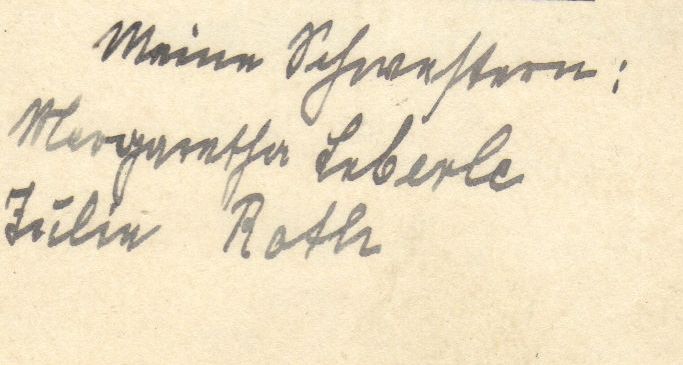 Meine Schwestern:
Margaretha Leberle
Julie Roth